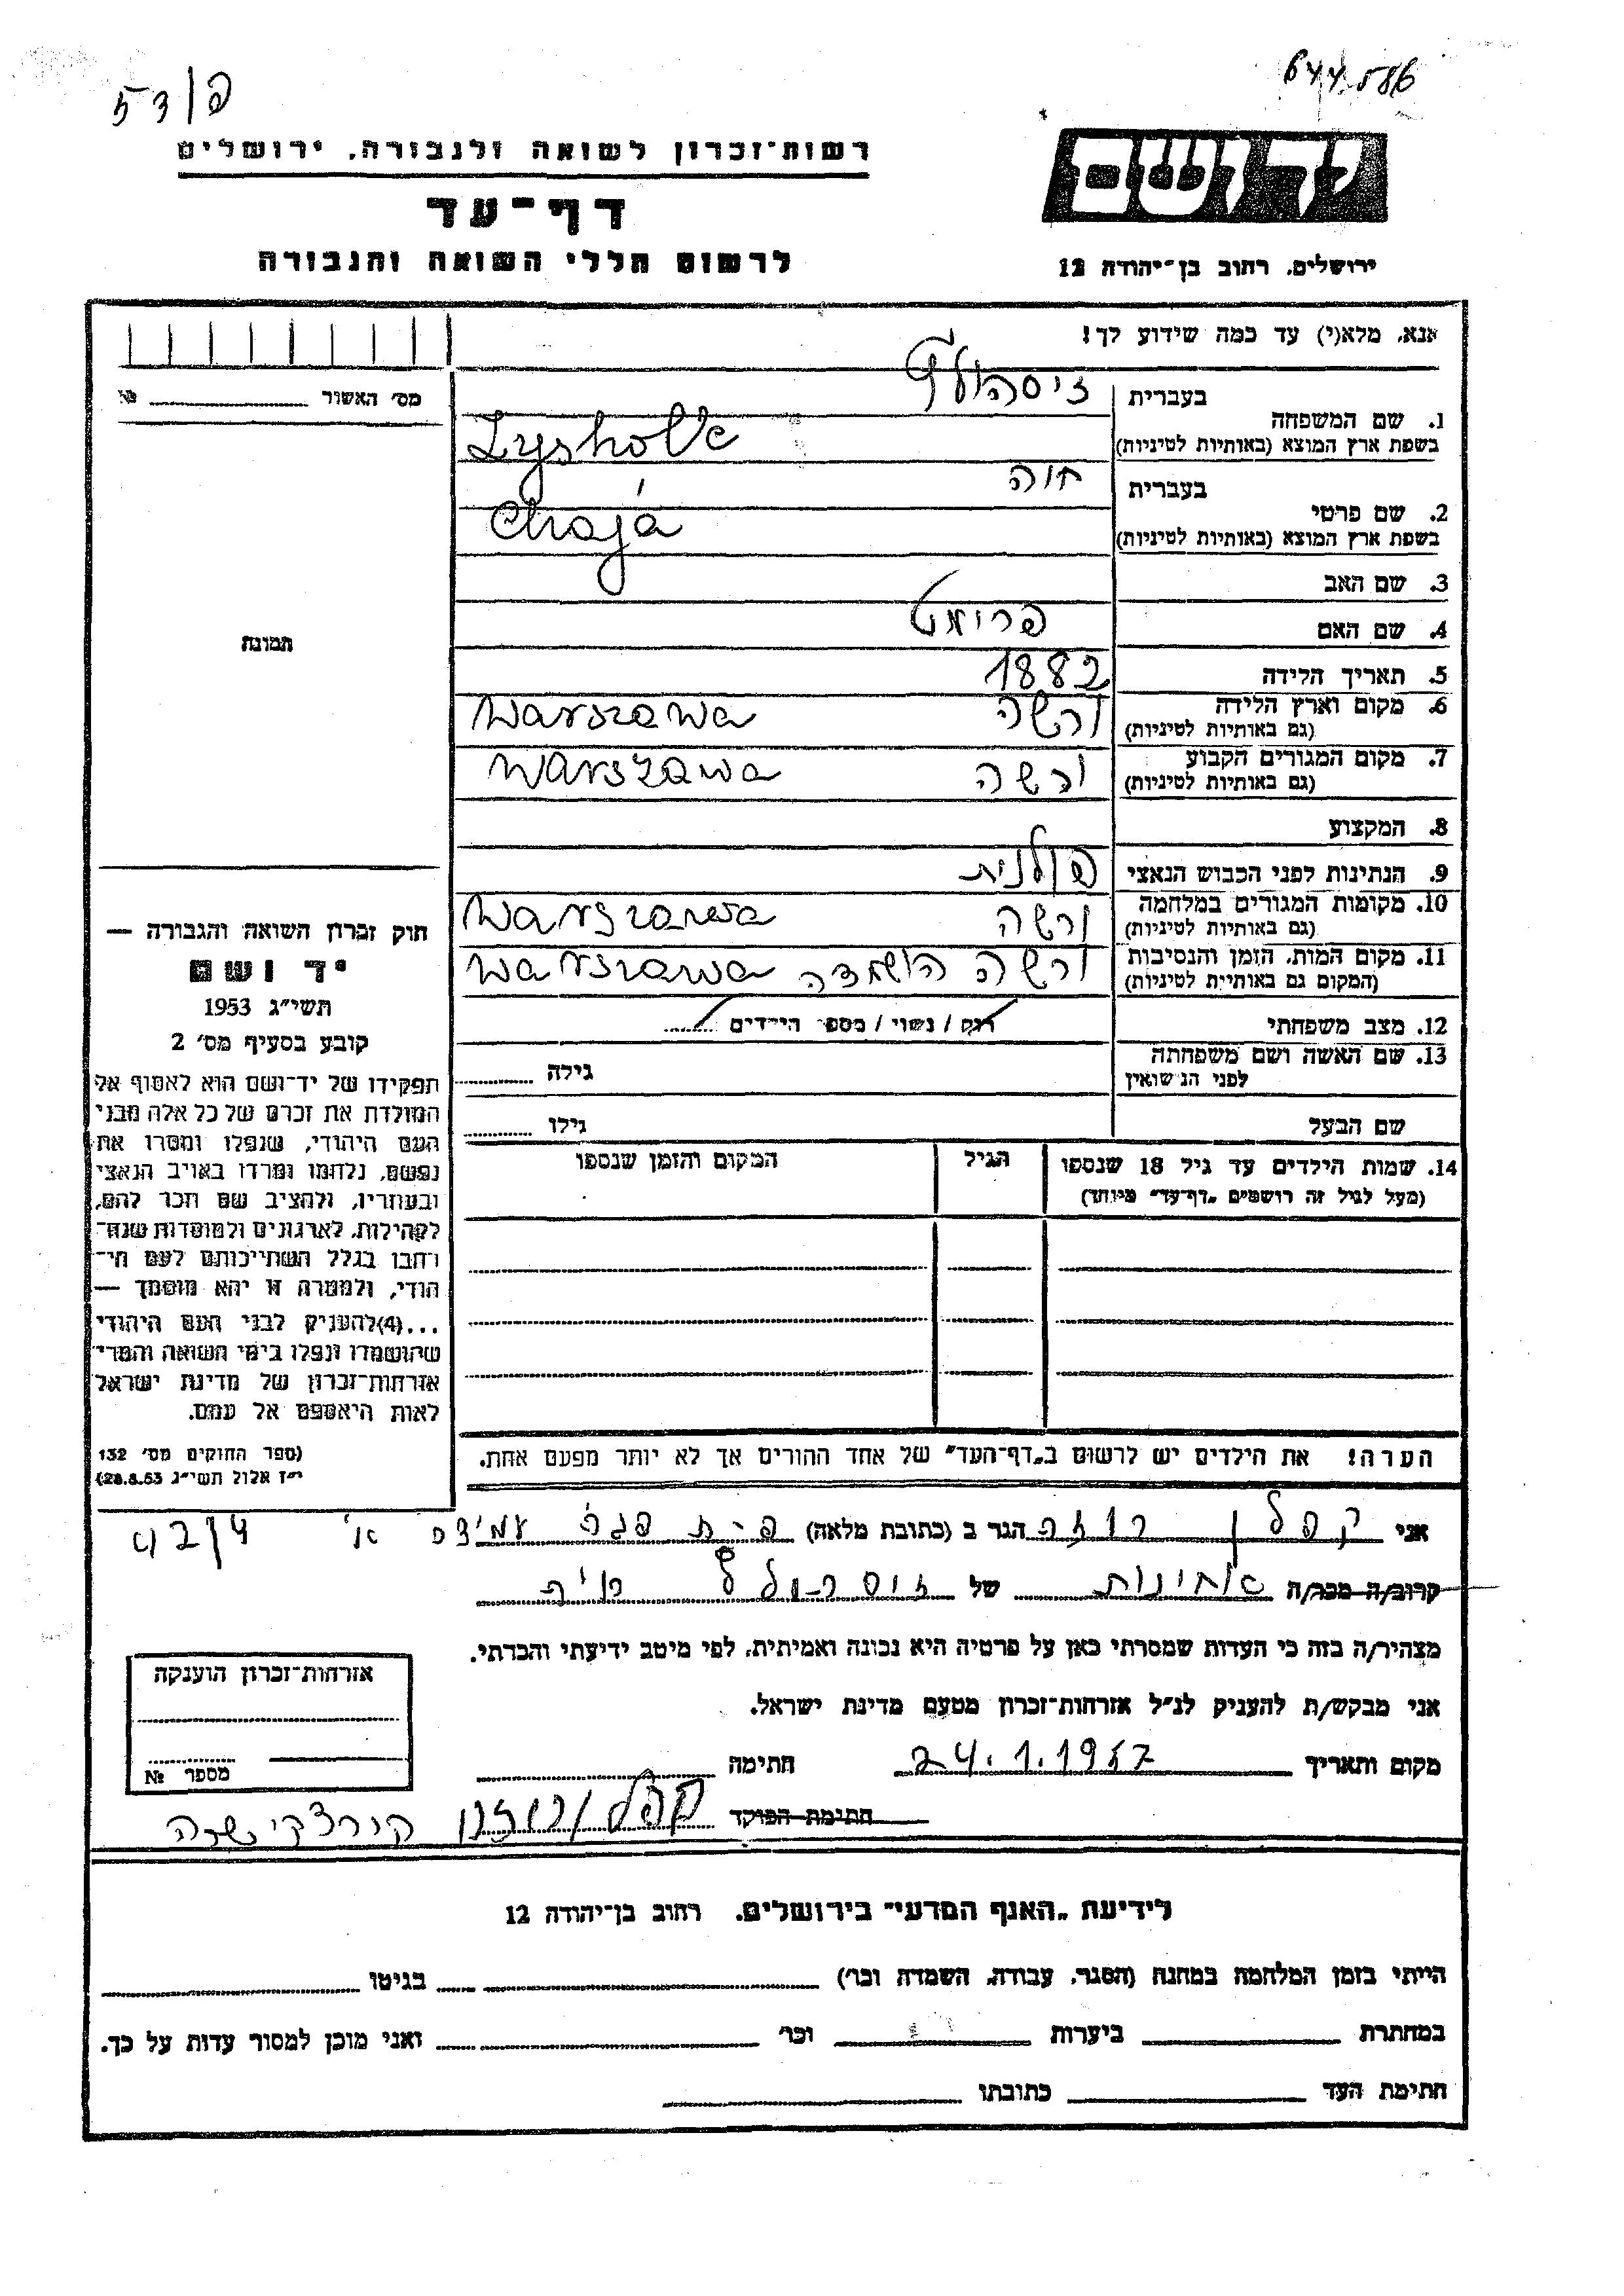 פ/53
644586
רשות־זכרון לשואה ולגבורה, ירושלים
דף־עד
לרשום חללי השואה והגבורה
ידושם
ירושלים, רחוב בן־יהודה 12
אנא, מלא(י) עד כמה שידוע לך!
מס׳ האשור № 
1. שם המשפחה
בעברית
בשפת ארץ המוצא (באותיות לטיניות)
2. שם פרטי
בעברית חוה
בשפת ארץ המוצא (באותיות לטיניות) Chaja
3. שם האב
4. שם האם
5. תאריך הלידה 1882
6. מקום וארץ הלידה ורשה Warszawa
(גם באותיות לטיניות)
7. מקום המגורים הקבוע ורשה Warszawa
(גם באותיות לטיניות)
8. המקצוע
9. הנתינות לפני הכבוש הנאצי פולנית
10. מקומות המגורים במלחמה ורשה Warszawa
(גם באותיות לטיניות)
11. מקום המות, הזמן והנסיבות ורשה הושמדה Warszawa
(המקום גם באותיות לטיניות)
12. מצב משפחתי רוק / נשוי / מספר הילדים
13. שם האשה ושם משפחתה גילה
לפני הנישואין
שם הבעל גילו
14. שמות הילדים עד גיל 18 שנספו הגיל המקום והזמן שנספו
(מעל לגיל זה רושמים „דף־עד״ מיוחד)
הערה! את הילדים יש לרשום ב„דף־העד״ של אחד ההורים אך לא יותר מפעם אחת.
תמונה
חוק זכרון השואה והגבורה —
יד ושם
תשי״ג 1953
קובע בסעיף מס׳ 2
תפקידו של יד־ושם הוא לאסוף אל
המולדת את זכרם של כל אלה מבני
העם היהודי, שנפלו ומסרו את
נפשם, נלחמו ומרדו באויב הנאצי
ובעוזריו, ולהציב שם וזכר להם,
לקהילות, לארגונים ולמוסדות שנח־
רחבו בגלל השתייכותם לעם הי־
הודי, ולמטרה זו יהא מוסמך —
...(4)להעניק לבני העם היהודי
שהושמדו ונפלו בימי השואה והמרי
אזרחות־זכרון של מדינת ישראל
לאות היאספם אל עמם.
(ספר החוקים מס׳ 132
י״ז אלול תשי״ג 28.8.53)
אני קפלן רוזה הגר ב (כתובת מלאה)
קרוב/ה מכר/ה של
מצהיר/ה בזה כי העדות שמסרתי כאן על פרטיה היא נכונה ואמיתית, לפי מיטב ידיעתי והכרתי.
אני מבקש/ת להעניק לנ״ל אזרחות־זכרון מטעם מדינת ישראל.
מקום ותאריך 24.1.1957 חתימה
חתימת הפוקד
אזרחות־זכרון הוענקה
מספר №
לידיעת „האגף המדעי״ בירושלים, רחוב בן־יהודה 12
הייתי בזמן המלחמה במחנה (הסגר, עבודה, השמדה וכר׳) בגיטו
במחתרת ביערות וכר׳ ואני מוכן למסור עדות על כך.
חתימת העד כתובתו